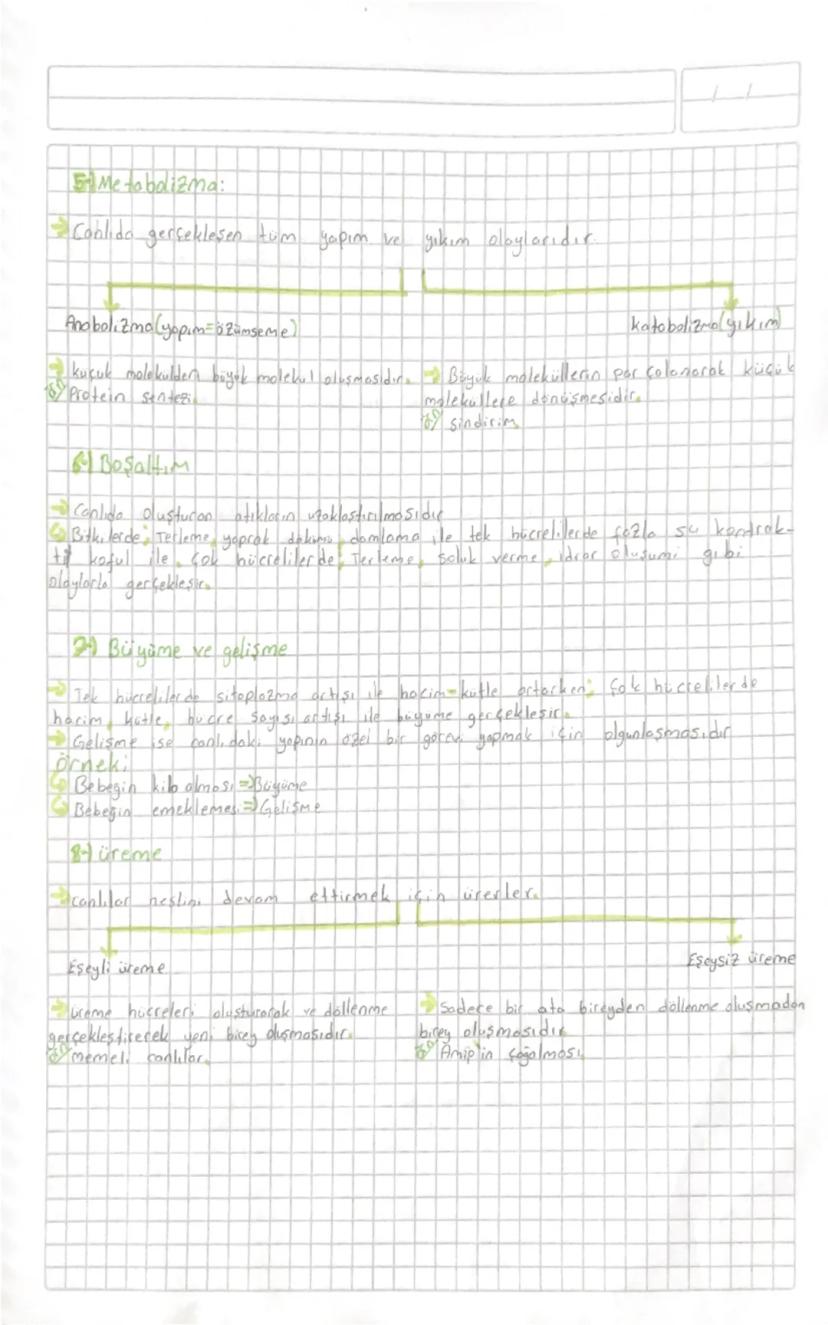 5-) Metabolizma:
→ Canlıda gerçekleşen tüm yapım ve yıkım olaylarıdır.
Anabolizma (yapım=özümseme)
Katabolizma (yıkım)
→ küçük molekülden büyük molekül oluşmasıdır.
ör/ Protein sentezi.
→ Büyük moleküllerin parçalanarak küçük
moleküllere dönüşmesidir.
ör/ sindirim
6-) Boşaltım
→ Canlıda oluşturan atıkların uzaklaştırılmasıdır
Bitkilerde; Terleme, yaprak dökümü, damlama ile tek hücrelilerde fazla su kontrak-
til koful ile, çok hücrelilerde; Terleme, soluk verme, idrar oluşumi gibi
olaylarla gerçekleşir.
7-) Büyüme ve gelişme
→ Tek hücrelilerde sitoplazma artışı ile hacim-kütle artarken; çok hücrelilerde
hacim, kütle, hücre sayısı artışı ile büyüme gerçekleşir.
→ Gelişme ise canlıdaki yapının özel bir görevi yapmak için olgunlaşmasıdır
Örnek:
Bebeğin kilo alması ⇒ Büyüme
Bebeğin emeklemesi ⇒ Gelişme
8-) üreme
→ canlılar neslini devam ettirmek için ürerler.
Eşeyli üreme
Eşeysiz üreme
→ üreme hücreleri oluşturarak ve döllenme
gerçekleştirecek yeni birey oluşmasıdır.
ör/ memeli canlılar.
→ Sadece bir ata bireyden döllenme oluşmadan
birey oluşmasıdır
ör/ Amip'in çoğalması